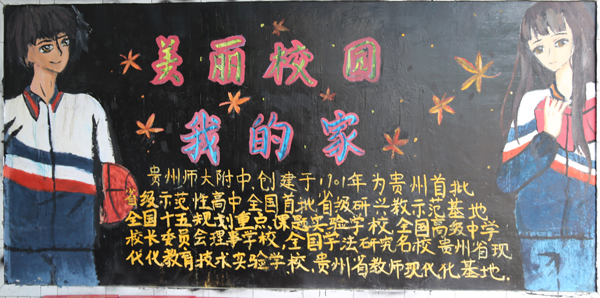 美丽校园
我的家
贵州师大附中,创建于1901年为贵州首批
省级示范性高中,全国首批省级研兴教示范基地
全国十五规划重点课题实验学校,全国高级中学
校长委员会理事学校,全国学法研究名校,贵州省现
代化教育技术实验学校,贵州省教师现代化基地.